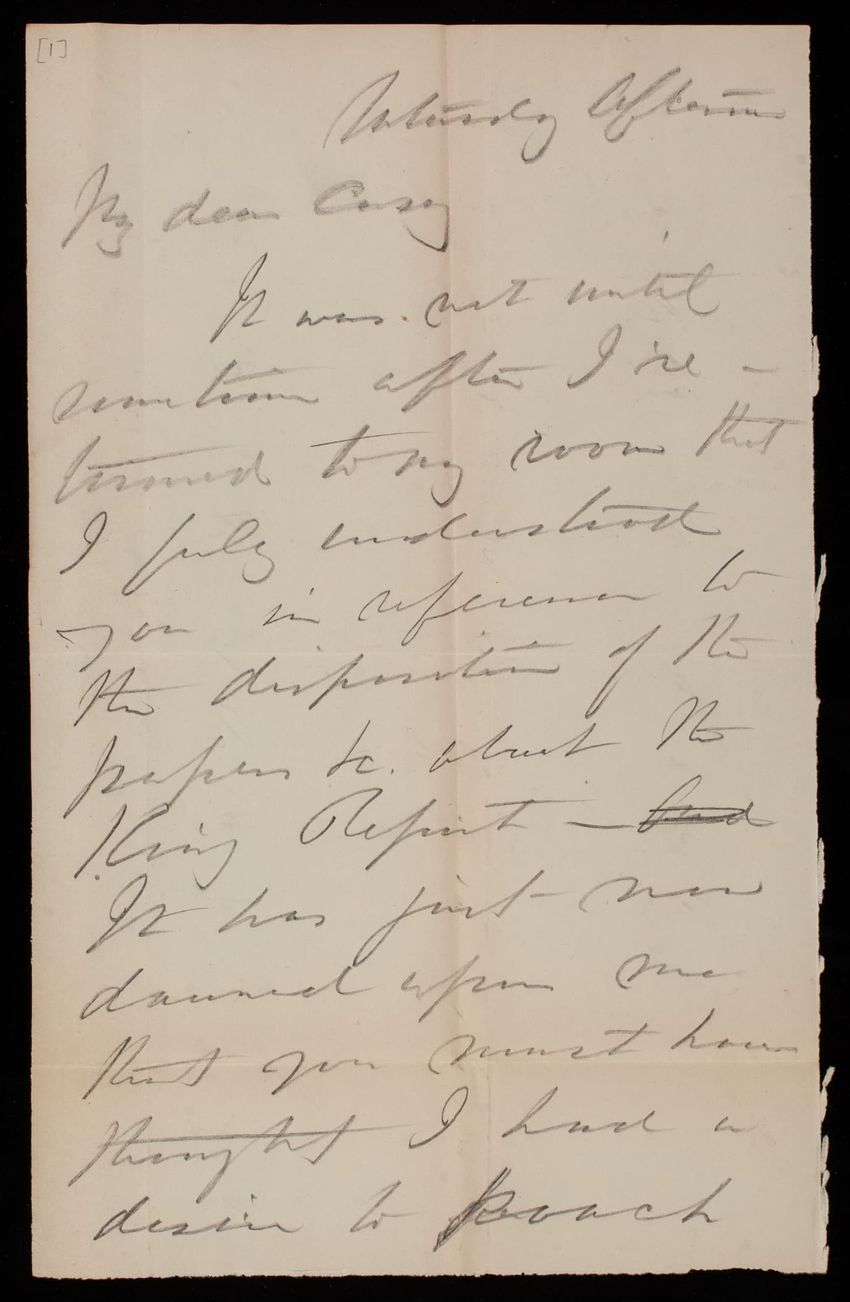 [1]
Saturday Afternoon
My dear Casey
It was not until
sometime after I re-
turned to my room that
I fully understood
you in reference to
the disposition of the
papers &c. about the
King Report — and
It has just now
dawned upon me
that you must have
thought I had a
desire to poach